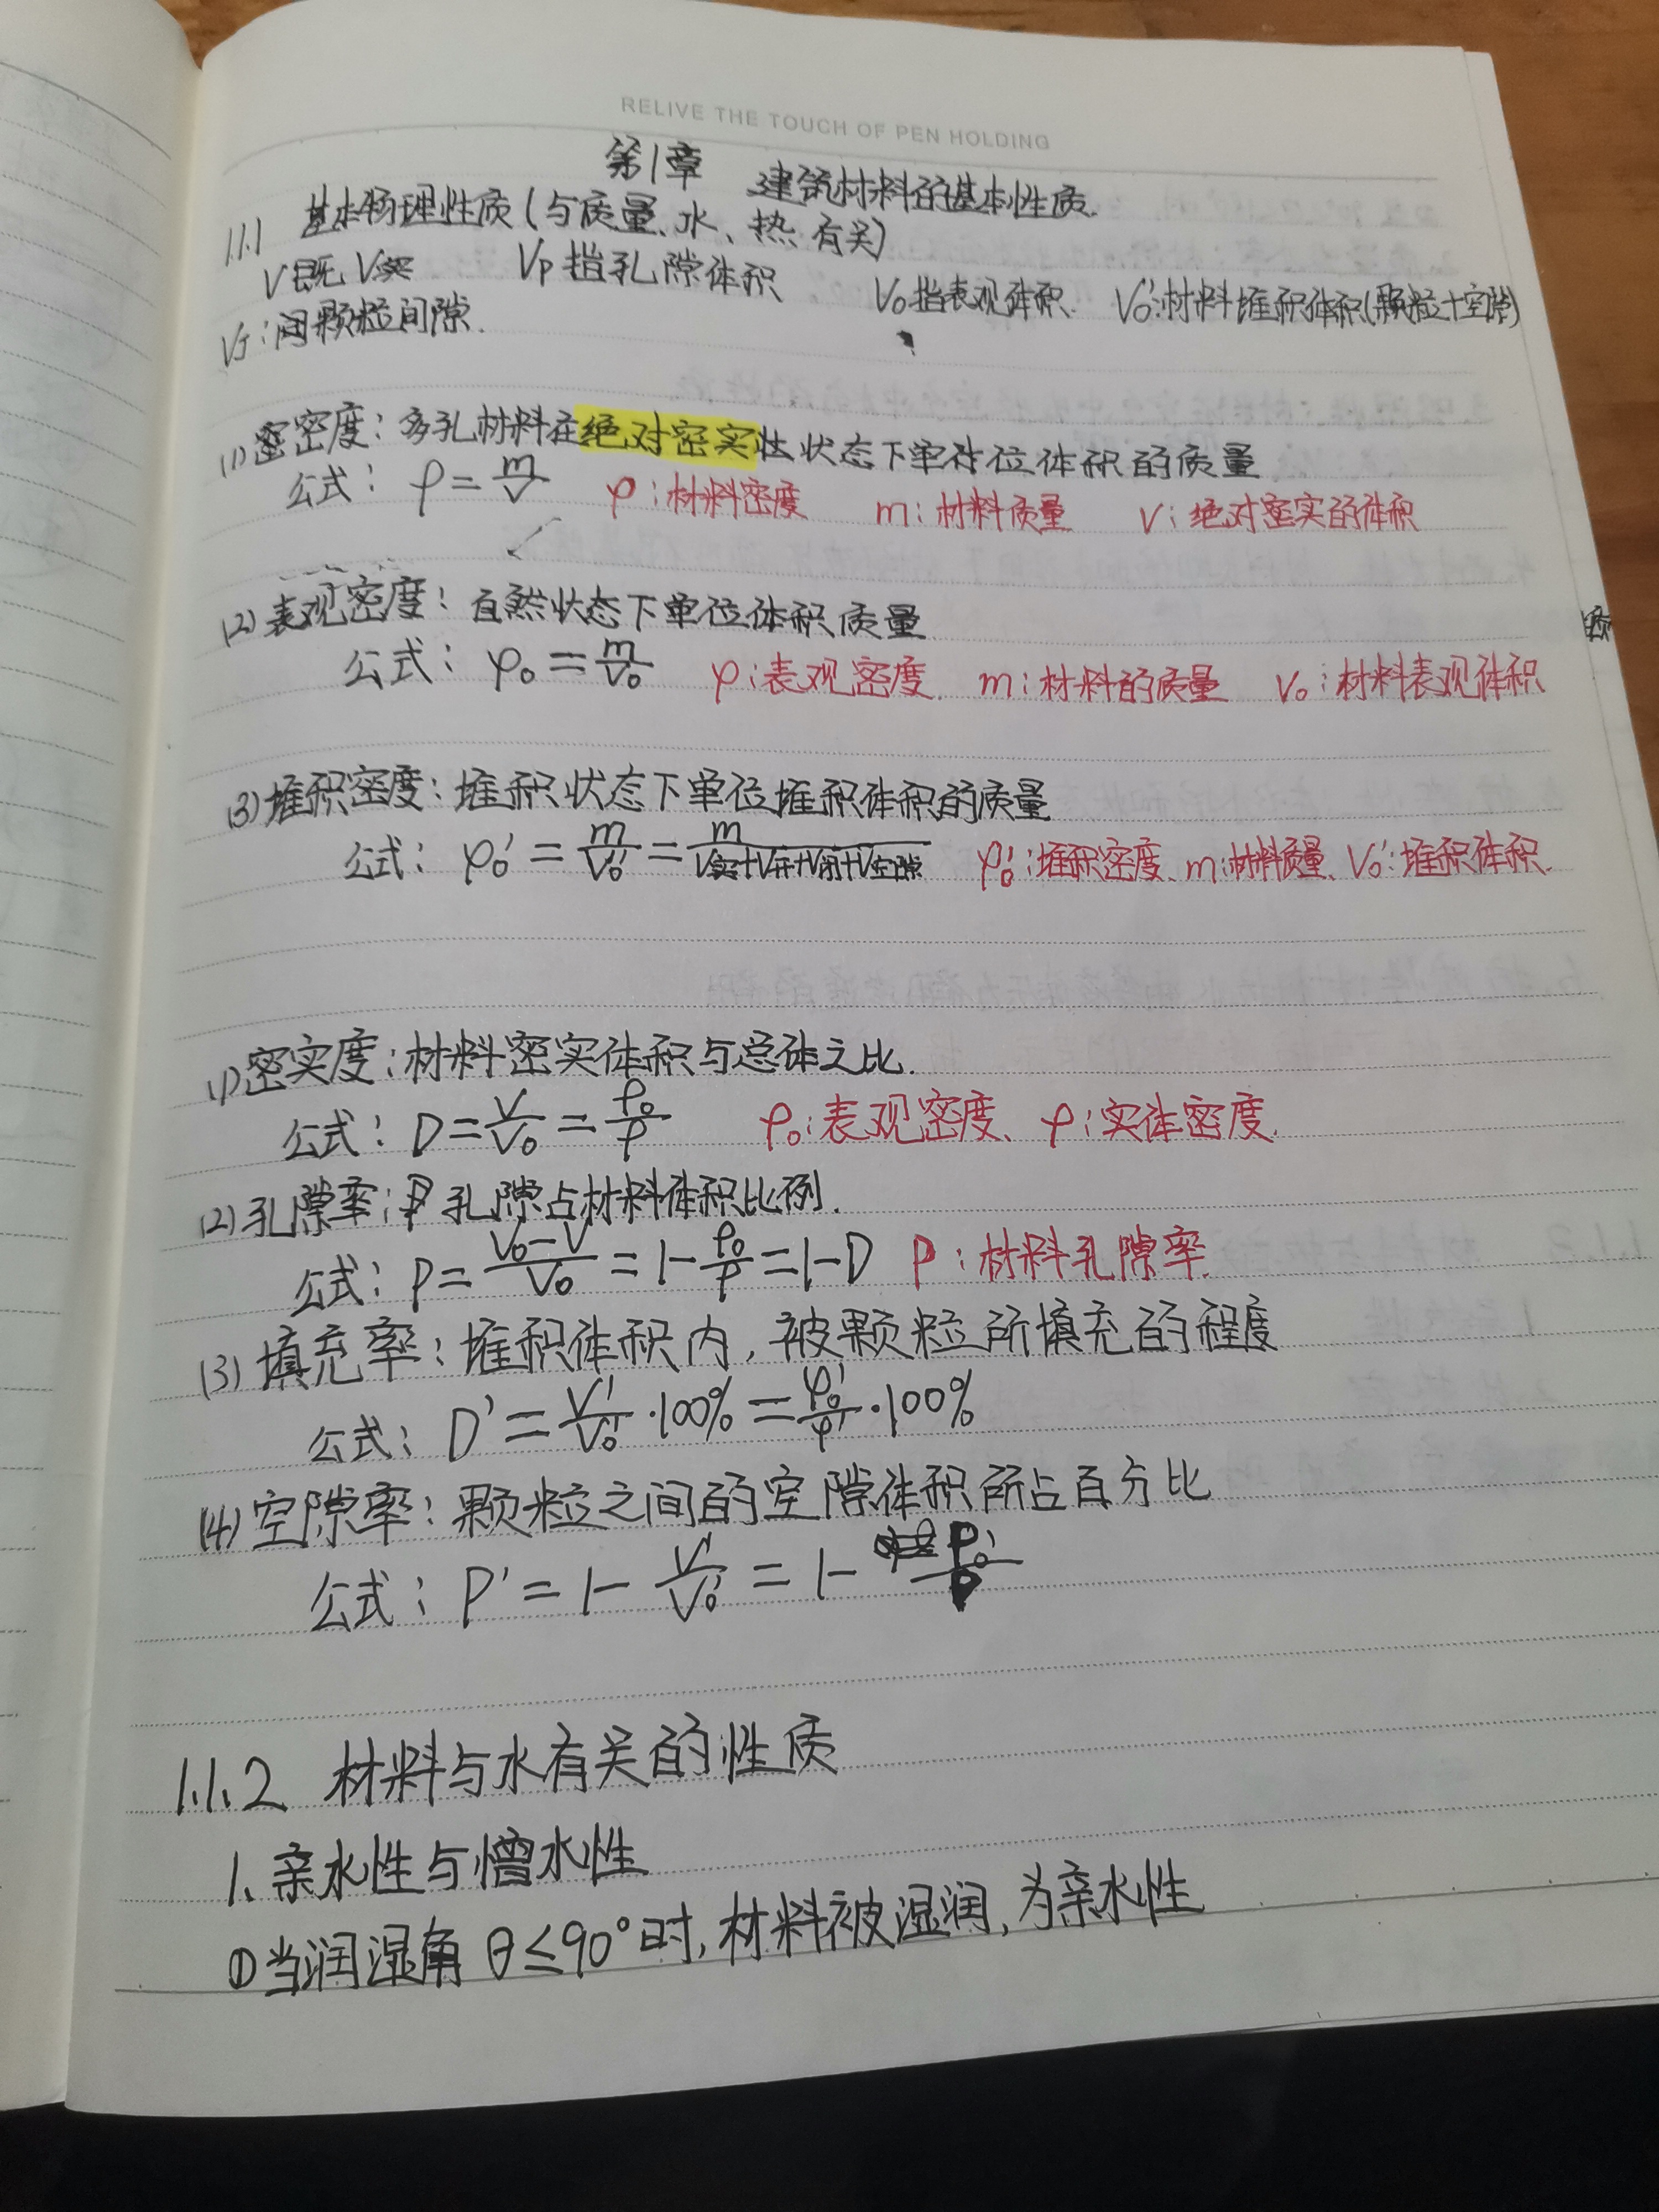 RELIVE THE TOUCH OF PEN HOLDING
第1章 建筑材料的基本性质.
1.1.1 基本物理性质(与质量、水、热有关)
V既V实 Vp指孔隙体积 V₀指表观体积. V₀':材料堆积体积(颗粒+空隙)
:间颗粒间隙.
(1)密密度:多孔材料在绝对密实状态下单位体积的质量
公式: ρ=m/V ρ:材料密度 m:材料质量 V:绝对密实的体积
(2)表观密度:自然状态下单位体积质量
公式: ρ₀=m/V₀ ρ:表观密度. m:材料的质量 V₀:材料表观体积
(3)堆积密度:堆积状态下单位堆积体积的质量
公式: ρ₀'=m/V₀'=m/(V实+V开+V闭+V空隙) ρ₀':堆积密度、m:材料质量、V₀':堆积体积.
(1)密实度:材料密实体积与总体之比.
公式: D=V/V₀=ρ₀/ρ ρ₀:表观密度、ρ:实体密度.
(2)孔隙率:孔隙占材料体积比例.
公式: P=(V₀-V)/V₀=1-ρ₀/ρ=1-D P:材料孔隙率.
(3)填充率:堆积体积内,被颗粒所填充的程度
公式: D'=V'/V₀'·100%=ρ₀'/ρ'·100%
(4)空隙率:颗粒之间的空隙体积所占百分比
公式: P'=1-V'/V₀'=1-ρ₀'/ρ'
1.1.2 材料与水有关的性质
1.亲水性与憎水性
①当润湿角θ≤90°时,材料被湿润,为亲水性